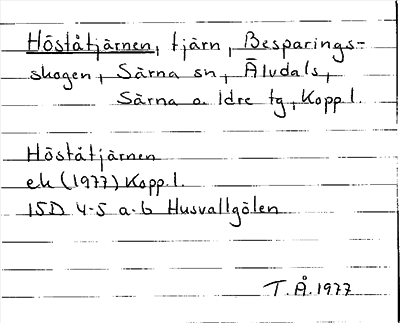 Höståtjärnen, tjärn, Besparings-
skogen, Särna sn, Älvdals,
Särna o. Idre tg, Kopp.l.
Höståtjärnen
ek (1977) Kopp.l.
15D 4-5 a-b Husvallgölen
T.Å.1977